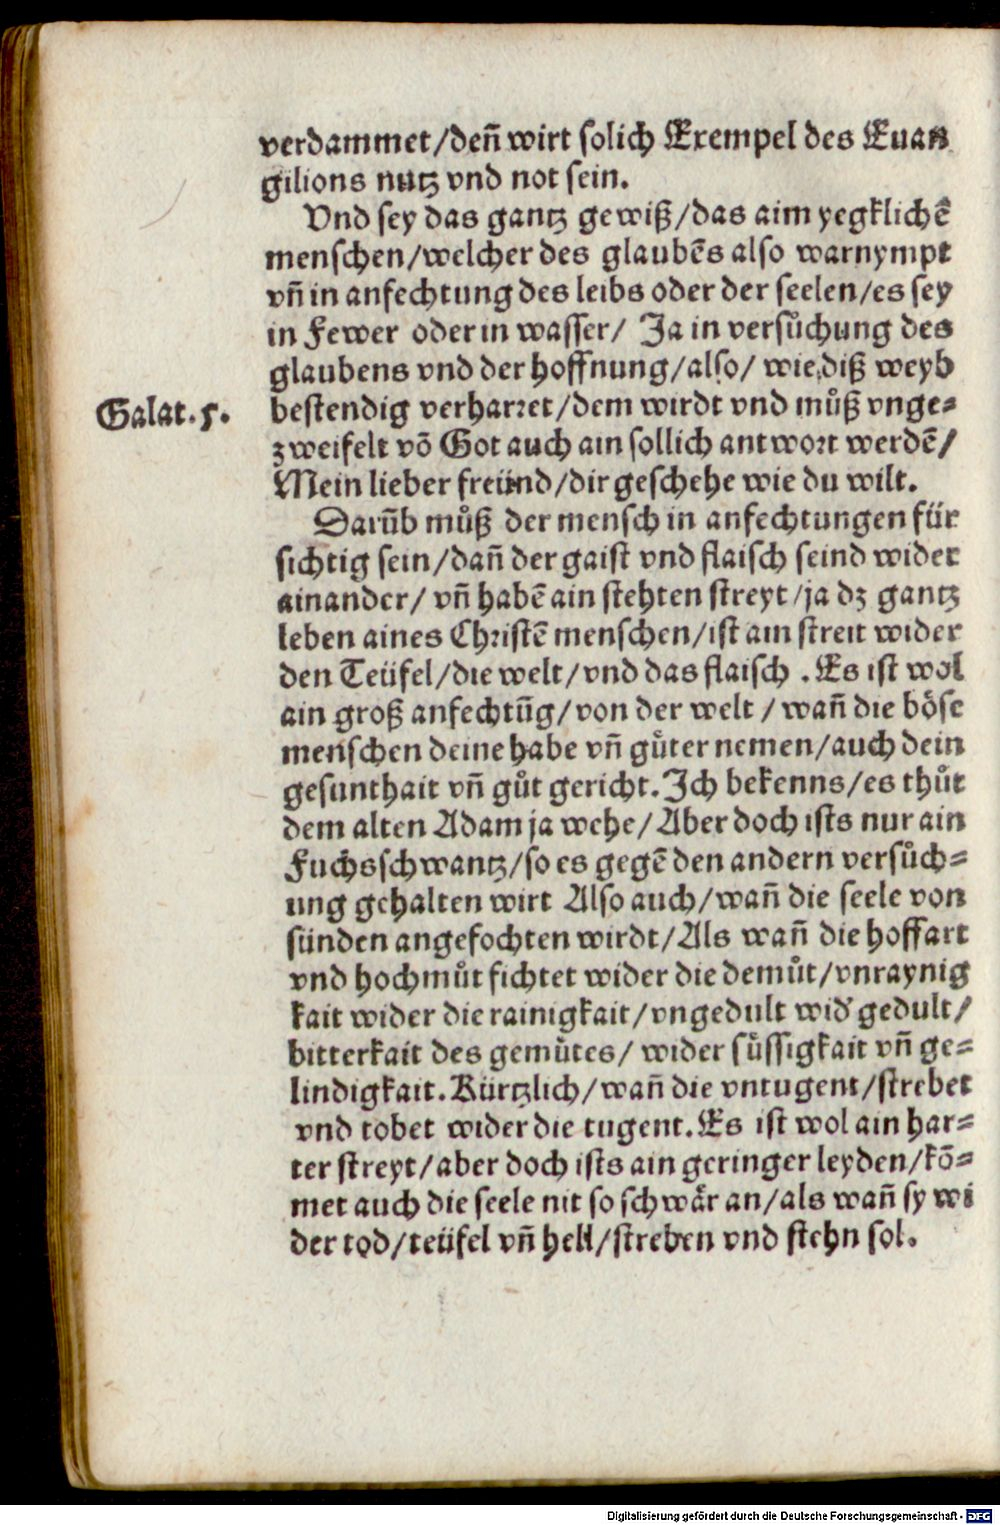 verdammet/deñ wirt solich Exempel des Euan
gilions nutz vnd not sein.
Vnd sey das gantz gewiß/das aim yegklichē
menschen/welcher des glaubēs also warnympt
vñ in anfechtung des leibs oder der seelen/es sey
in Fewer oder in wasser/ Ja in versůchung des
glaubens vnd der hoffnung/also/ wie diß weyb
Galat.5.
bestendig verharret/dem wirdt vnd můß vnge=
zweifelt võ Got auch ain sollich antwort werdē/
Mein lieber freünd/dir geschehe wie du wilt.
Darüb můß der mensch in anfechtungen für
sichtig sein/dañ der gaist vnd flaisch seind wider
ainander/ vñ habē ain stehten streyt/ja dz gantz
leben aines Christē menschen/ist ain streit wider
den Teüfel/die welt/vnd das flaisch .Es ist wol
ain groß anfechtūg/von der welt /wañ die böse
menschen deine habe vñ gůter nemen/auch dein
gesunthait vñ gůt gericht.Ich bekenns/es thůt
dem alten Adam ja wehe/Aber doch ists nur ain
Fuchsschwantz/so es gegē den andern versůch=
ung gehalten wirt Also auch/wañ die seele von
sünden angefochten wirdt/Als wañ die hoffart
vnd hochmůt fichtet wider die demůt/vnraynig
kait wider die rainigkait/vngedult wid' gedult/
bitterkait des gemůtes/ wider sůssigkait vñ ge=
lindigkait.Kürtzlich/wañ die vntugent/strebet
vnd tobet wider die tugent.Es ist wol ain har=
ter streyt/aber doch ists ain geringer leyden/kõ=
met auch die seele nit so schwår an/als wañ sy wi
der tod/teüfel vñ hell/streben vnd stehn sol.
Digitalisierung gefördert durch die Deutsche Forschungsgemeinschaft - DFG